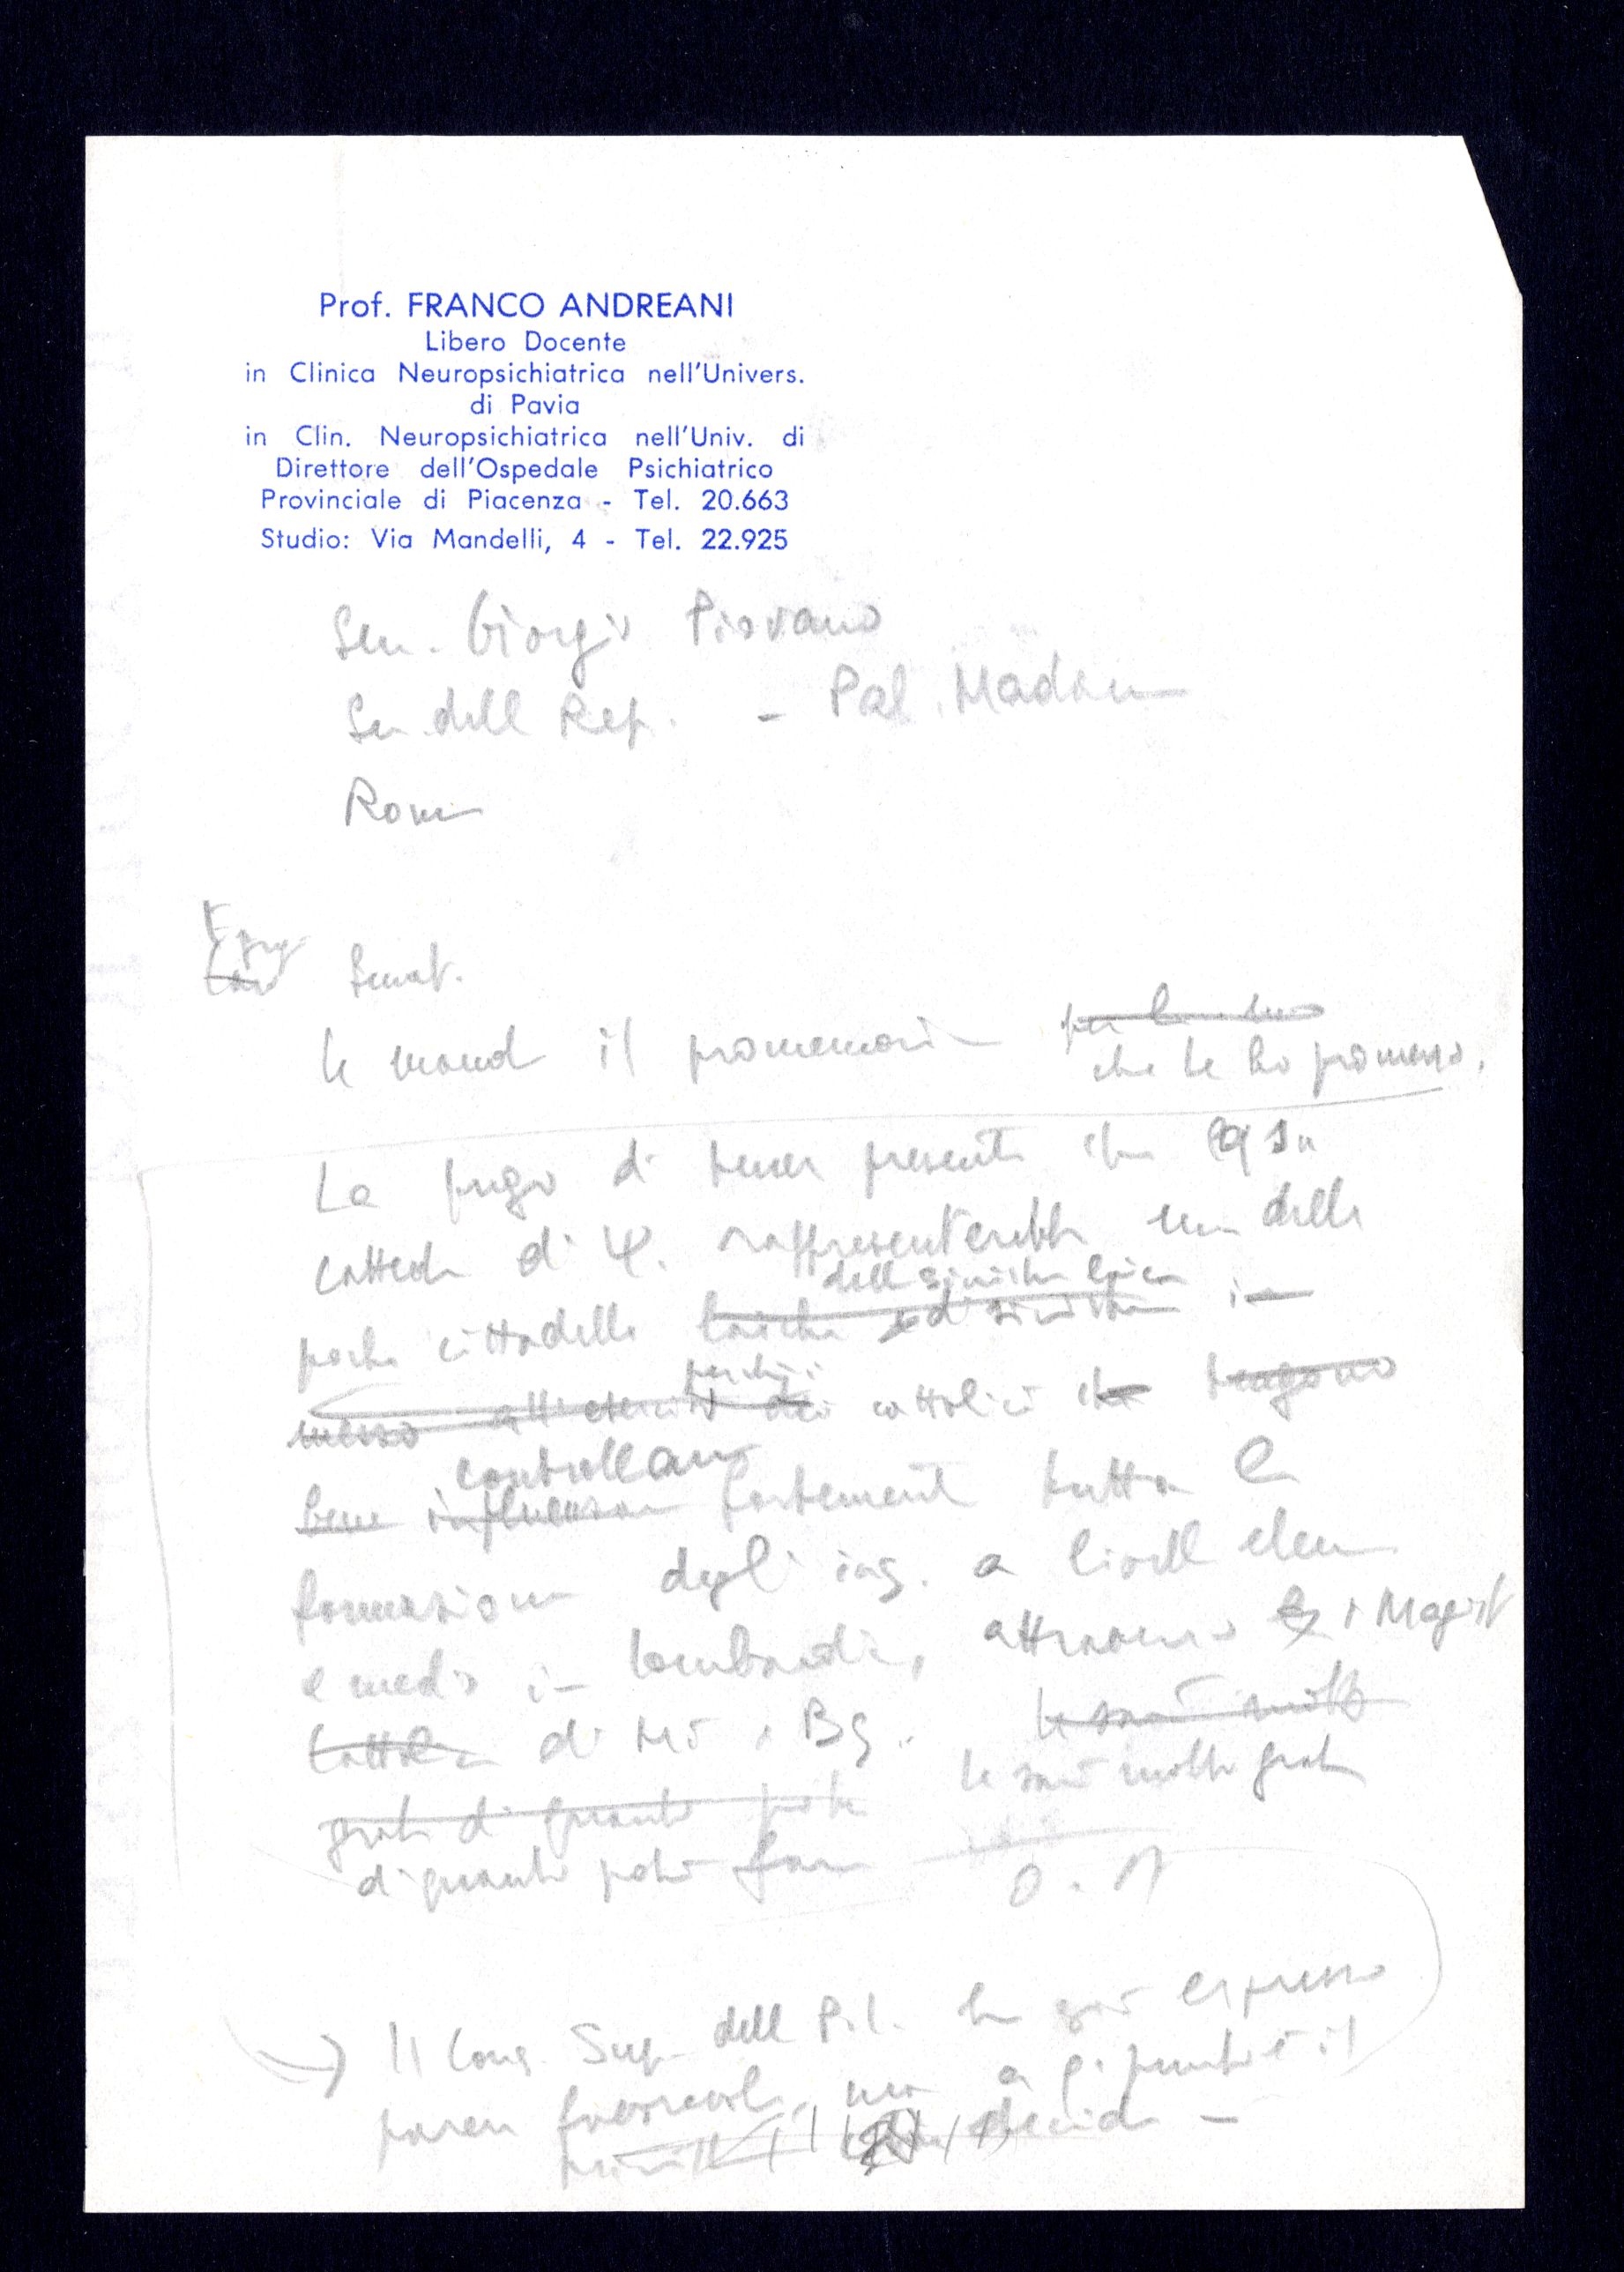 Prof. FRANCO ANDREANI
Libero Docente
in Clinica Neuropsichiatrica nell'Univers.
di Pavia
in Clin. Neuropsichiatrica nell'Univ. di
Direttore dell'Ospedale Psichiatrico
Provinciale di Piacenza - Tel. 20.663
Studio: Via Mandelli, 4 - Tel. 22.925
Sen. Giorgio Piovano
Sen. dell Rep. - Pal. Madam
Roma
Egreg
Caro Senat.
le mand il promemoria
che le ho promesso.
La prego di tener presente che
cattedra di Ψ. rappresenterebbe una delle
dell sinistra laica
poche cittadelle laiche e di sinistra in
perché i
mezzo cattolici che tengono
controllano
bene influenzano fortemente tutta la
formazione degli ins. a livell elem
e medio in Lombardia, attraverso i Magist
Cattol di Mi e Bg. le sarò molto
grato di quanto potrà le sarò molto grato
di quanto potrà fare
→ Il Cons. Sup. dell P.I. ha già espresso
parere favorevole, ma a q. punto è il
decide -